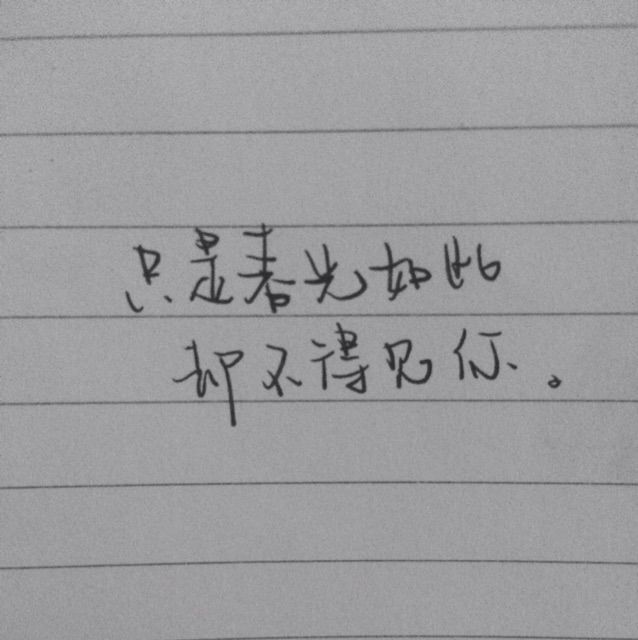 只是春光如此
却不得见你。